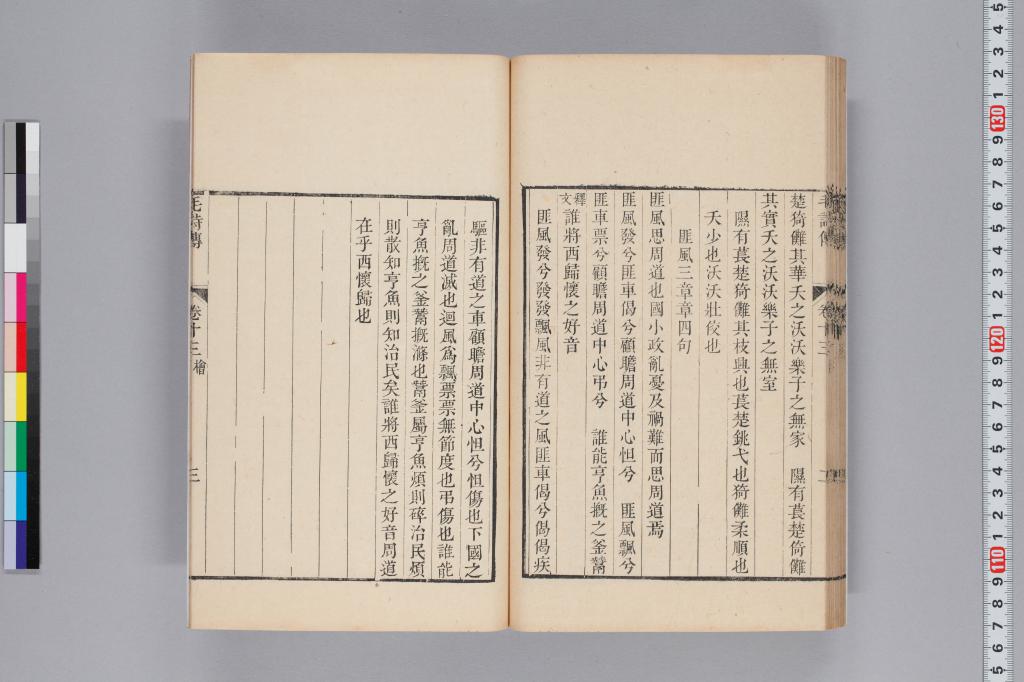 楚猗儺其華夭之沃沃樂子之無家　隰有萇楚猗儺
其實夭之沃沃樂子之無室
隰有萇楚猗儺其枝興也萇楚銚弋也猗儺柔順也
夭少也沃沃壯佼也
匪風三章章四句
匪風思周道也國小政亂憂及禍難而思周道焉
匪風發兮匪車偈兮顧瞻周道中心怛兮　匪風飄兮
匪車票兮顧瞻周道中心弔兮　誰能亨魚摡之釜鬵
釋文誰將西歸懷之好音
匪風發兮發發飄風非有道之風匪車偈兮偈偈疾
驅非有道之車顧瞻周道中心怛兮怛傷也下國之
亂周道滅也迴風爲飄票票無節度也弔傷也誰能
亨魚摡之釜鬵摡滌也鬵釜屬亨魚煩則碎治民煩
則散知亨魚則知治民矣誰將西歸懷之好音周道
在乎西懷歸也
毛詩傳
卷十三　檜
三